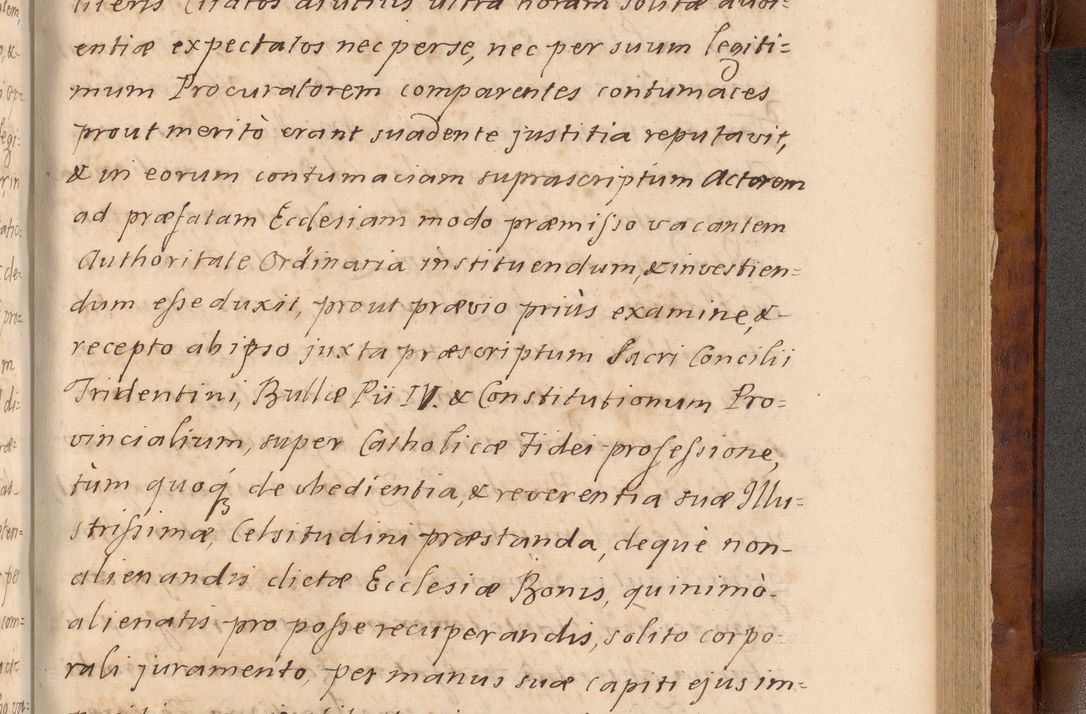 entiæ expectatos nec per se, nec per suum legiti=
mum Procuratorem comparentes contumaces
prout meritò erant suadente justitia reputavit,
& in eorum contumaciam suprascriptum Actorem
ad præfatam Ecclesiam modo præmisso vacantem
Authoritate Ordinaria instituendum, & investien=
dum esse duxit, prout prævio priùs examine, &
recepto ab ipso juxta præscriptum Sacri Concilii
Tridentini, Bullæ Pii IV. & Constitutionum Pro=
vincialium, super Catholicæ Fidei professione,
tùm quoq́ de obedientia, & reverentia suæ Illu=
strissimæ, Celsitudini præstanda, deque non-
alienandis dictæ Ecclesiæ Bonis, quinimò-
alienatis pro posse recuperandis, solito corpo=
rali juramento, per manus suæ capiti ejus im=